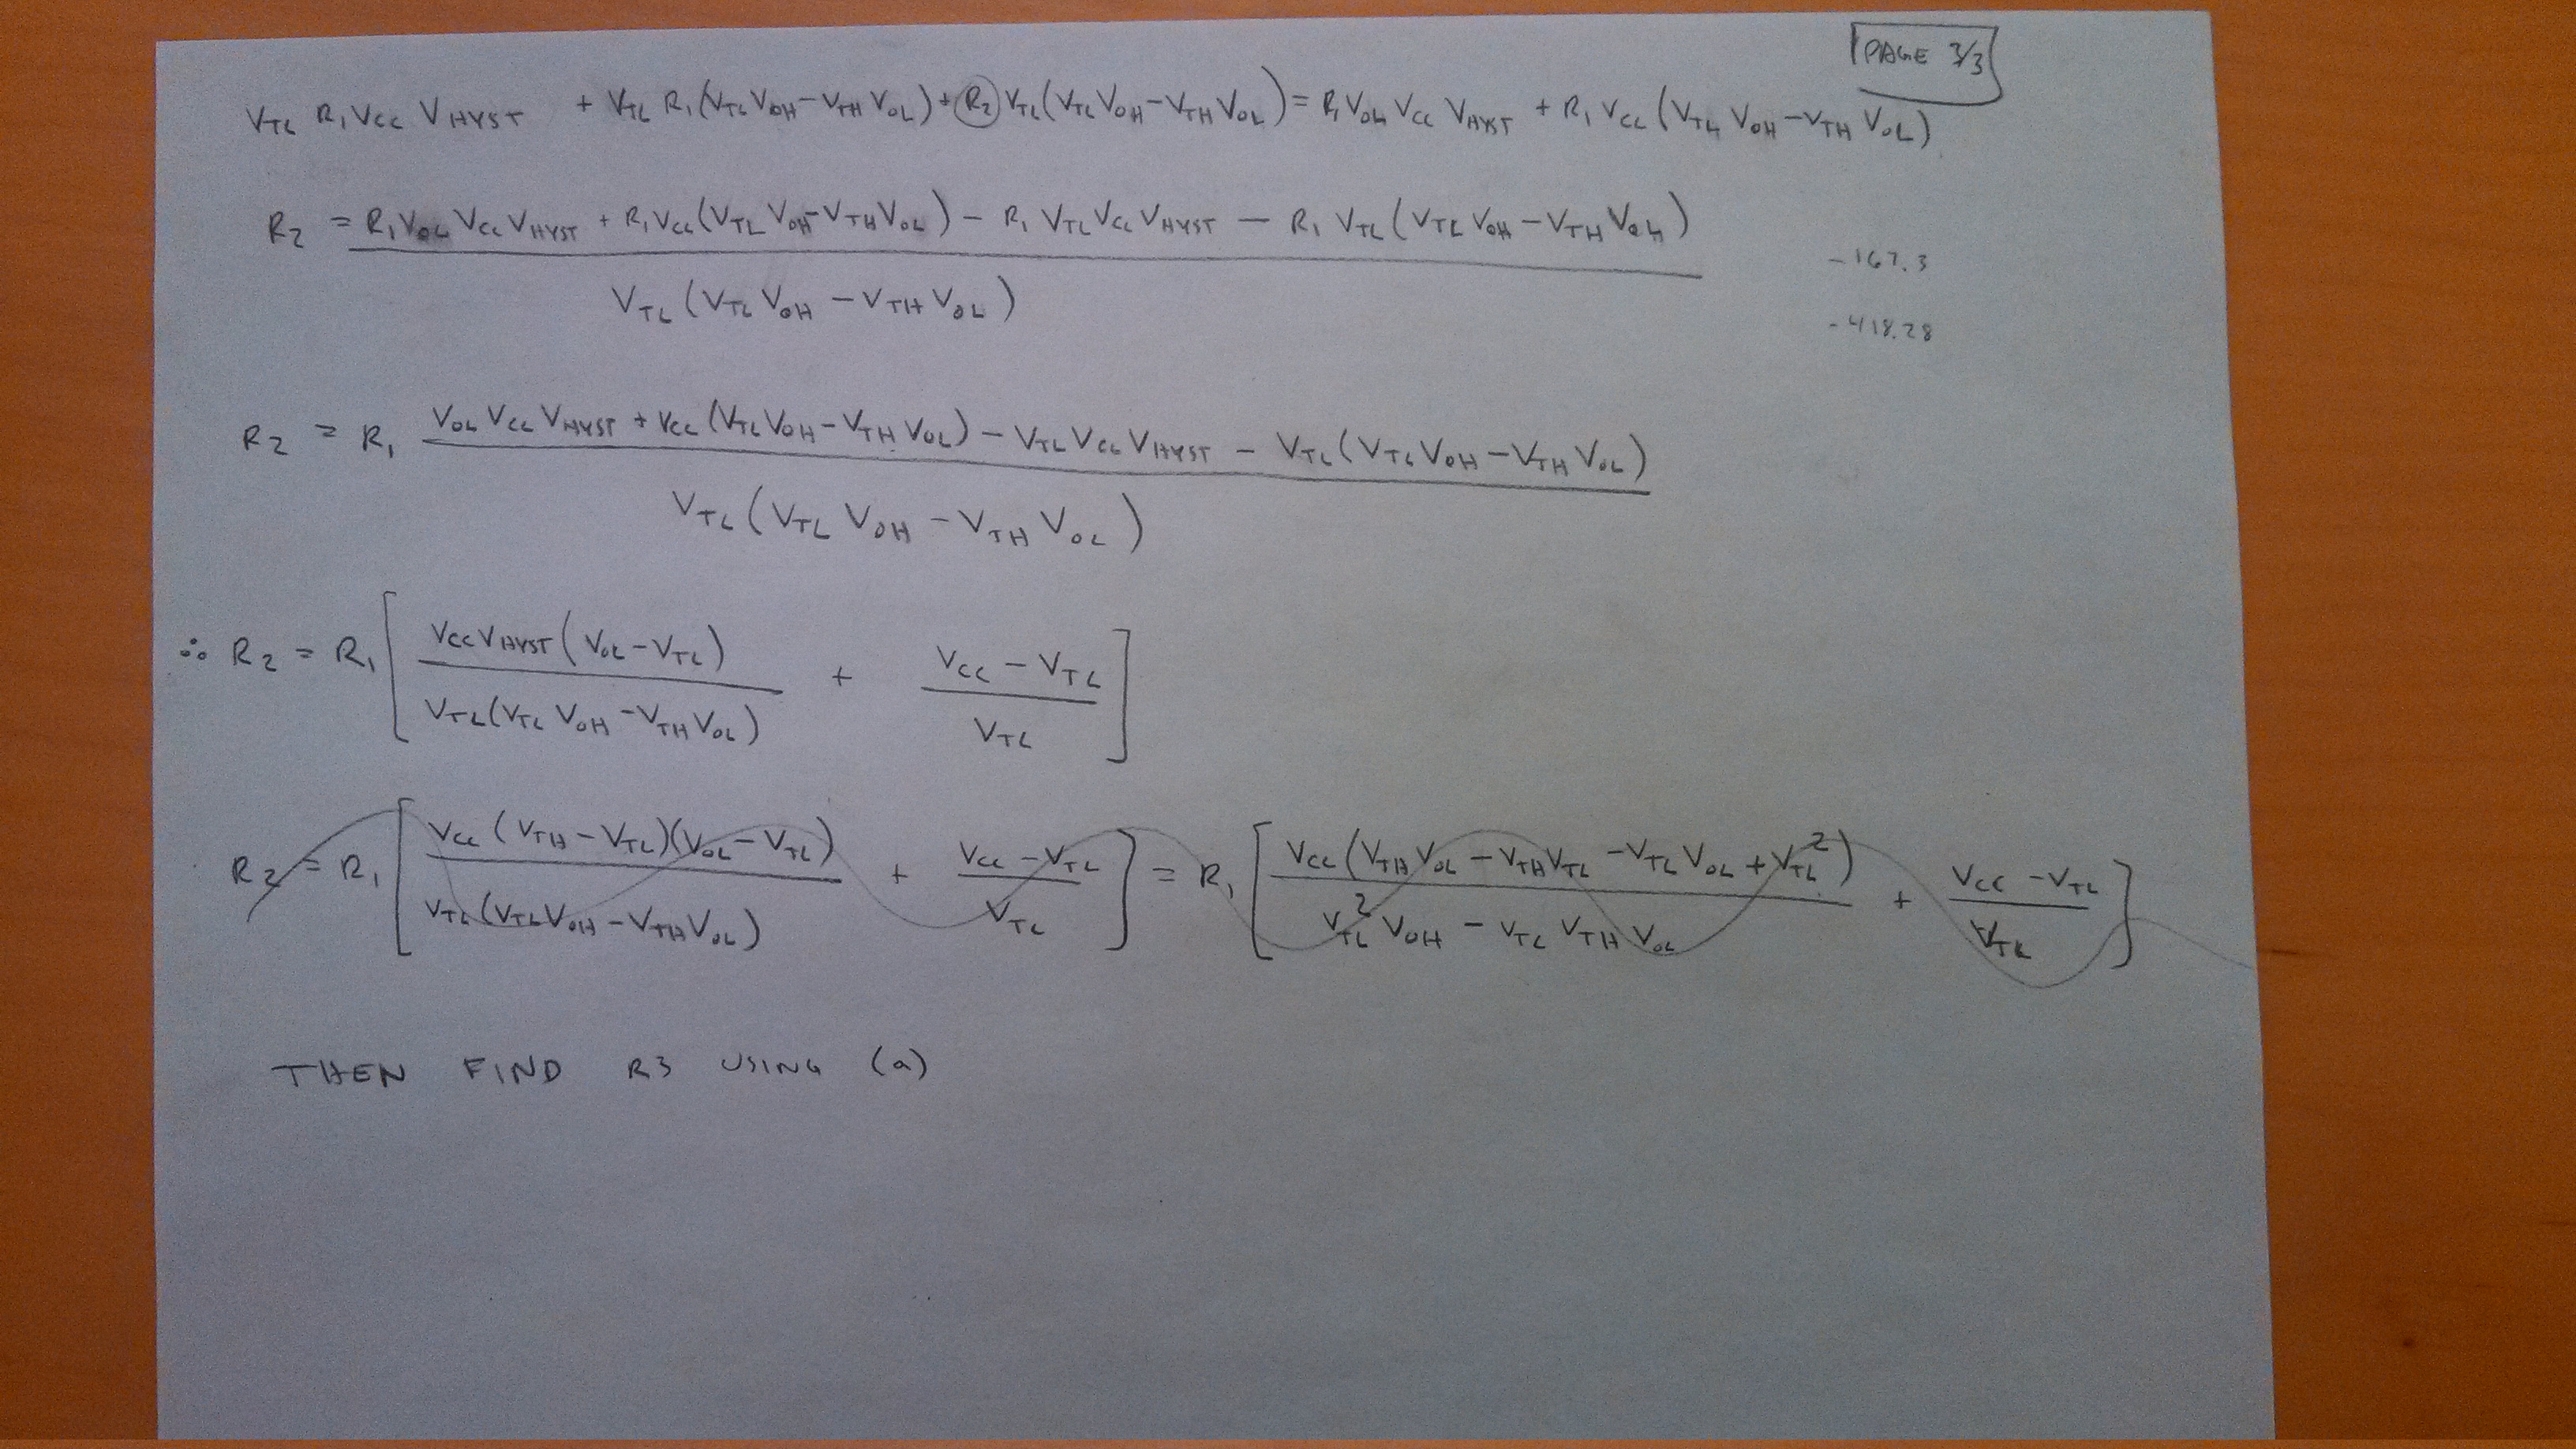 PAGE 3/3
V_TL R_1 V_CC V_HYST + V_TL R_1 (V_TL V_OH - V_TH V_OL) + R_2 V_TL (V_TL V_OH - V_TH V_OL) = R_1 V_OL V_CC V_HYST + R_1 V_CC (V_TL V_OH - V_TH V_OL)
R_2 = R_1 V_OL V_CC V_HYST + R_1 V_CC (V_TL V_OH - V_TH V_OL) - R_1 V_TL V_CC V_HYST - R_1 V_TL (V_TL V_OH - V_TH V_OL)
V_TL (V_TL V_OH - V_TH V_OL)
-167.3
-418.28
R_2 = R_1 V_OL V_CC V_HYST + V_CC (V_TL V_OH - V_TH V_OL) - V_TL V_CC V_HYST - V_TL (V_TL V_OH - V_TH V_OL)
V_TL (V_TL V_OH - V_TH V_OL)
∴ R_2 = R_1 [ V_CC V_HYST (V_OL - V_TL) / V_TL (V_TL V_OH - V_TH V_OL) + V_CC - V_TL / V_TL ]
R_2 = R_1 [ V_CC (V_TH - V_TL)(V_OL - V_TL) / V_TL (V_TL V_OH - V_TH V_OL) + V_CC - V_TL / V_TL ] = R_1 [ V_CC (V_TH V_OL - V_TH V_TL - V_TL V_OL + V_TL^2) / V_TL^2 V_OH - V_TL V_TH V_OL + V_CC - V_TL / V_TL ]
THEN FIND R3 USING (a)